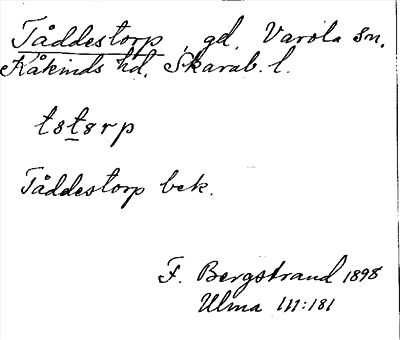 Tåddestorp, gd, Varola sn,
Kåkinds hd, Skarab. l.
tstårp
Tåddestorp bek.
F. Bergstrand 1898
Ulma 111:181